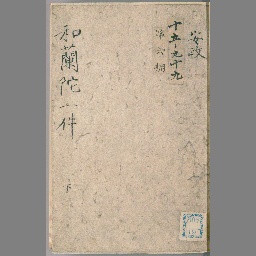 安政
十五ノ九十九
第六棚
和蘭陀一件
下